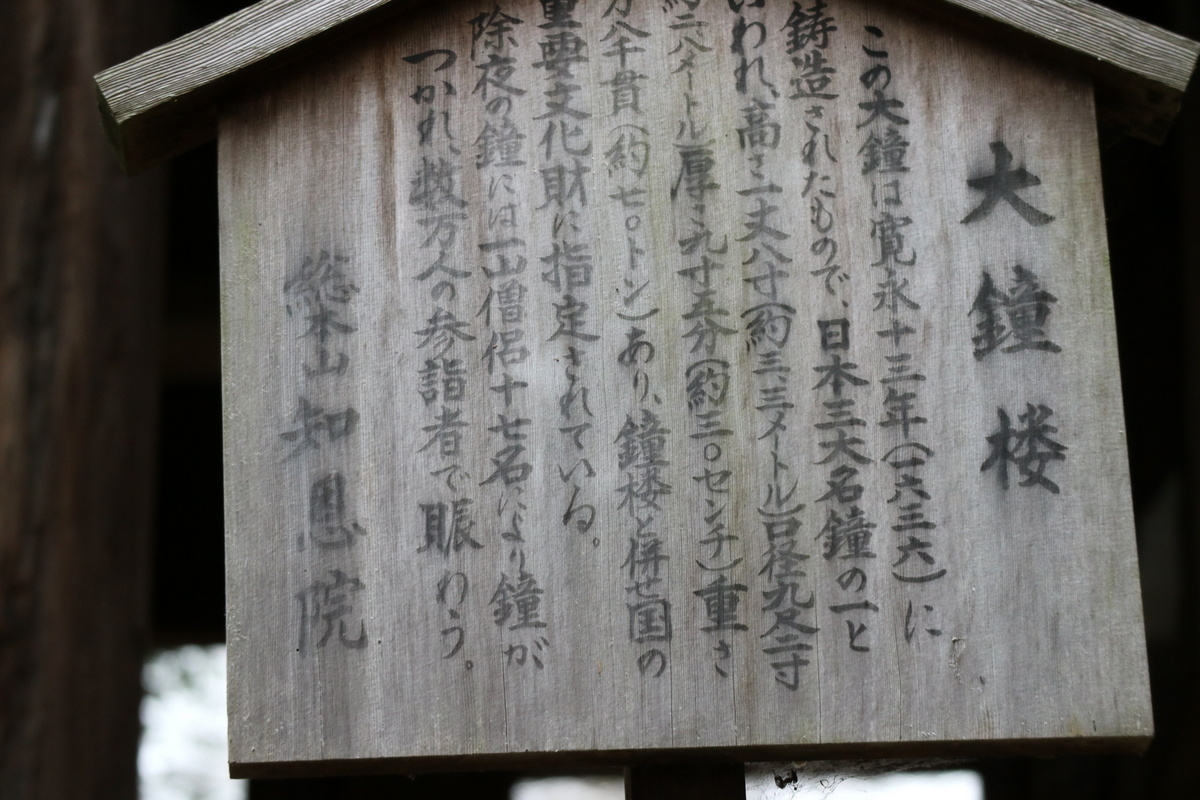 大鐘楼
この大鐘は寛永十三年(一六三六)に
鋳造されたもので、日本三大名鐘の一と
いわれ、高さ一丈八寸(約三、三メートル)口径九尺二寸
約二八メートル)厚さ九寸五分(約三〇センチ)重さ
万八千貫(約七〇トン)あり、鐘楼と併せ国の
重要文化財に指定されている。
除夜の鐘には一山僧侶十七名により鐘が
つかれ、数万人の参詣者で賑わう。
総本山 知恩院